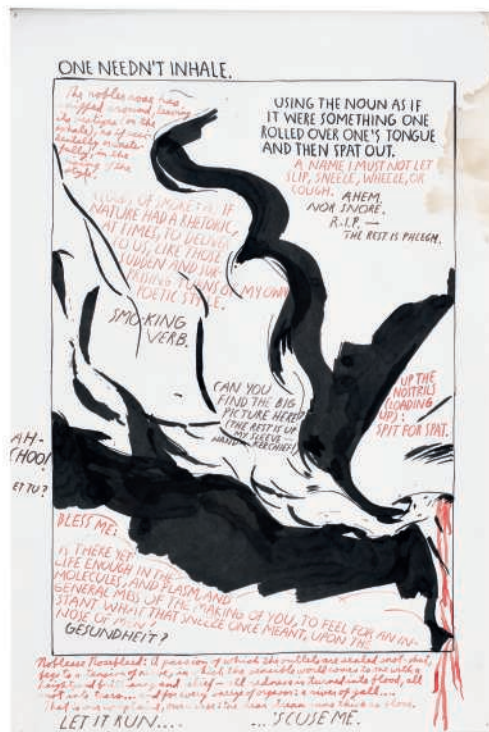 ONE NEEDN'T INHALE.
The nobler nose has
whipped around, leaving
its vestiges (on the
whale), as if
in the
of the
USING THE NOUN AS IF
IT WERE SOMETHING ONE
ROLLED OVER ONE'S TONGUE
AND THEN SPAT OUT.
A NAME I MUST NOT LET
SLIP, SNEEZE, WHEEZE, OR
COUGH. AHEM.
NOR SNORE.
R.I.P. —
THE REST IS PHLEGM.
CLOUDS OF SMOKE: AS IF
NATURE HAD A RHETORIC,
AT TIMES, TO DELIVER
TO US, LIKE THOSE
SUDDEN AND SUR-
PRISING TURNS OF MY OWN
POETIC STYLE.
SMO-KING
VERB.
CAN YOU
FIND THE BIG
PICTURE HERE?
(THE REST IS UP
MY SLEEVE —
HAND KERCHIEF)
UP THE
NOSTRILS
(LOADING
UP):
SPIT FOR SPAT.
AH-
CHOO!
ET TU?
BLESS ME:
IS THERE YET
LIFE ENOUGH IN THE
MOLECULES, AND PLASM, AND
GENERAL MESS OF THE MAKING OF YOU, TO FEEL FOR AN IN-
STANT WHAT THAT SNEEZE ONCE MEANT, UPON THE
NOSE OF MAN?
GESUNDHEIT?
Noblesse Nosebleed: A passion of which the outlets are sealed
to a tension of the sensible world comes to me with a
and all is turned into flood, all
of orgasm: a river of gall...
That is our complaint,
LET IT RUN.... ...'SCUSE ME.